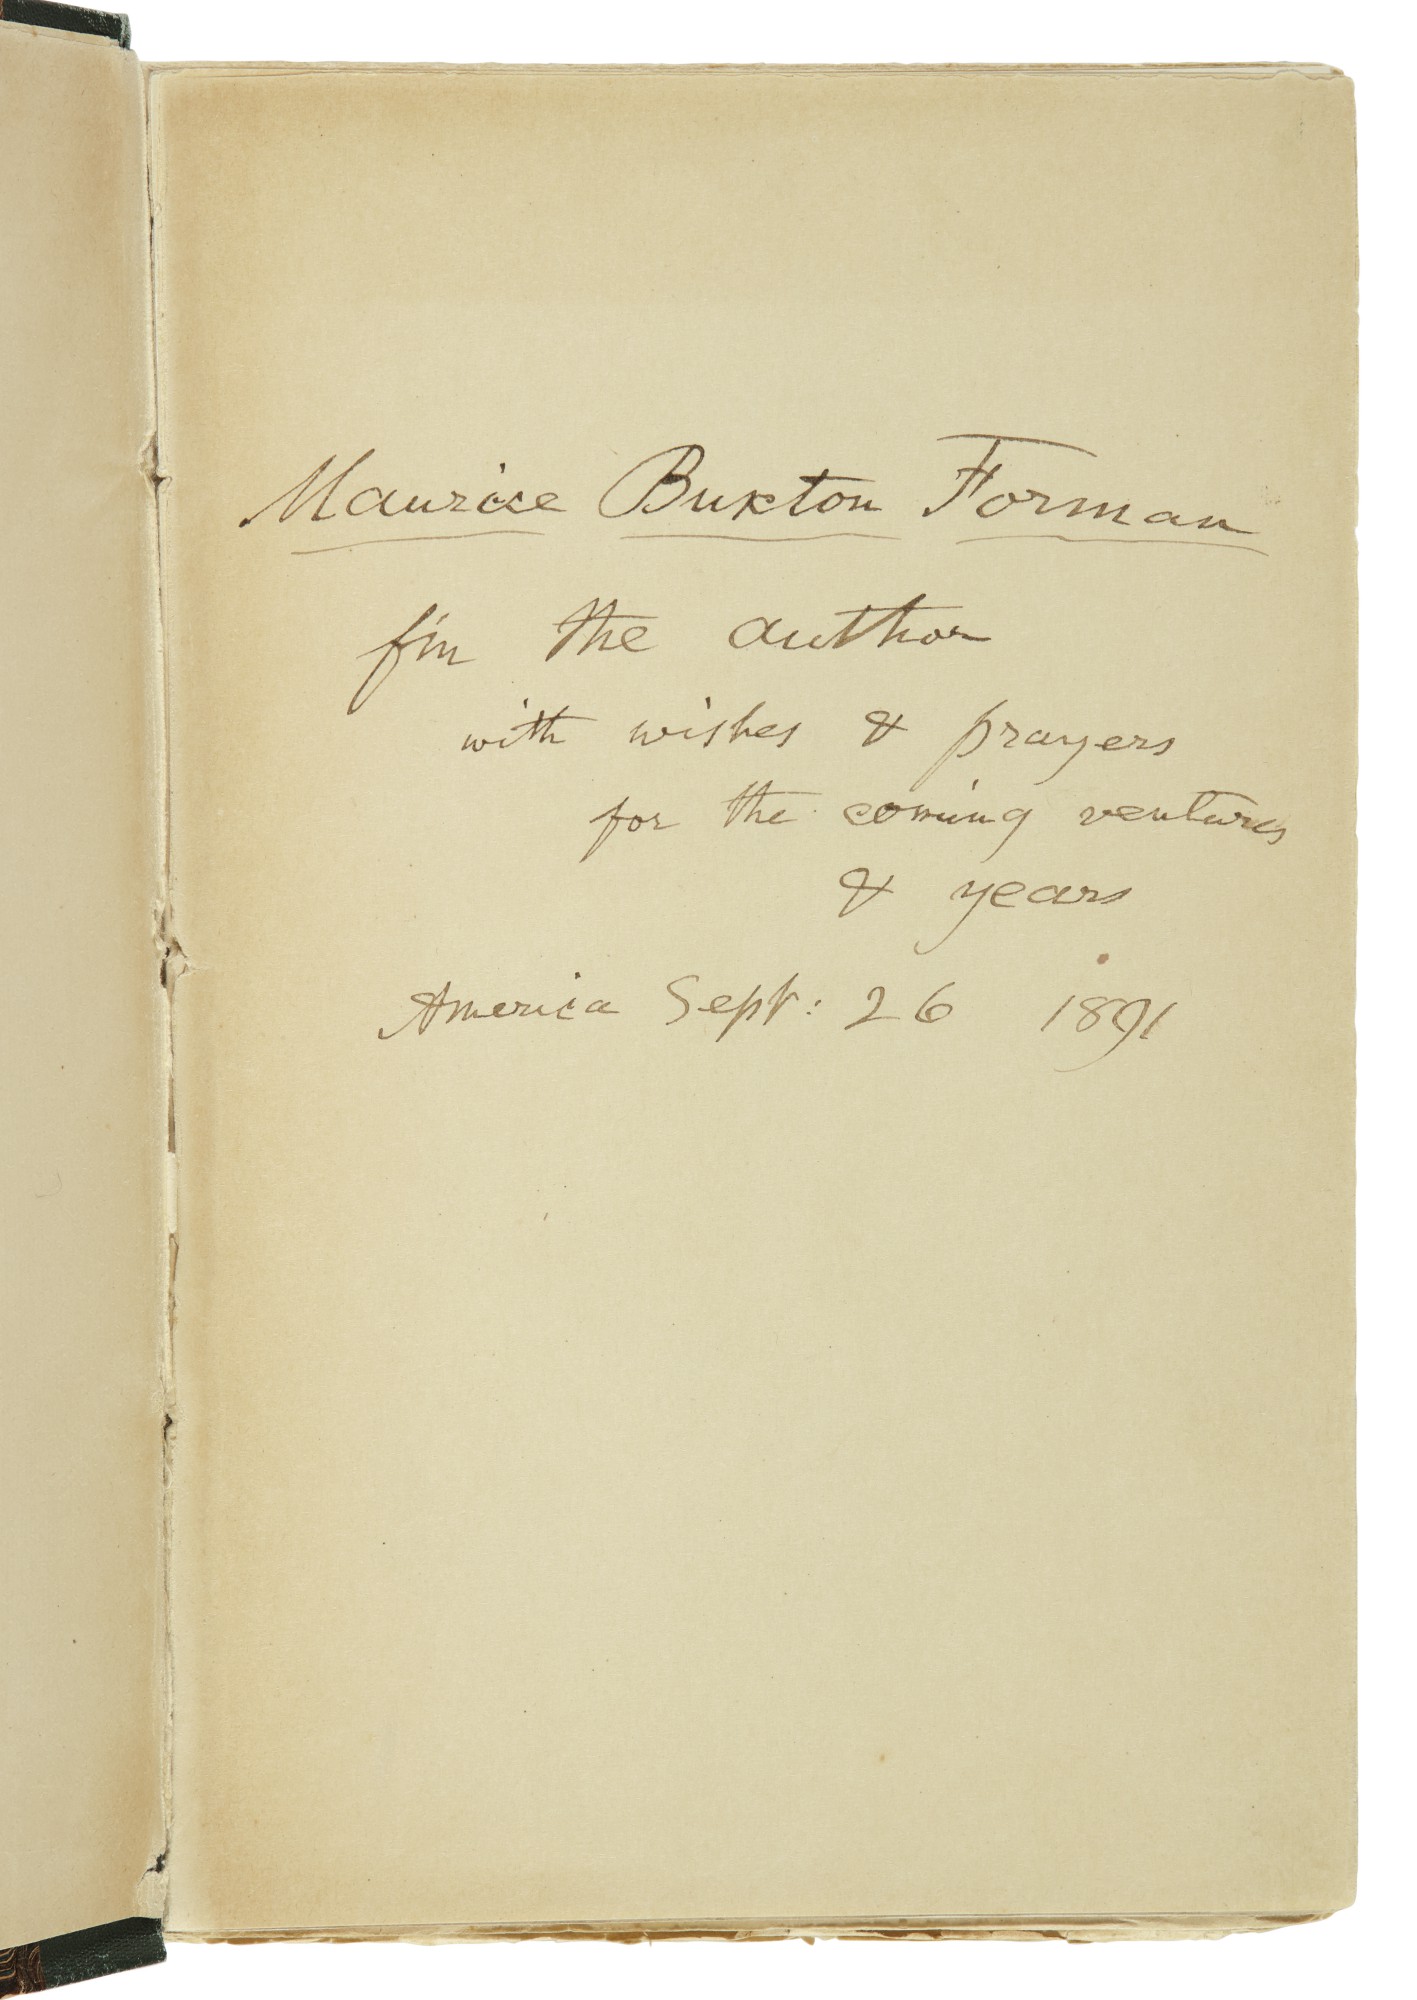 Maurice Buxton Forman
f'm the author
with wishes & prayers
for the coming ventures
& years
America Sept: 26 1891